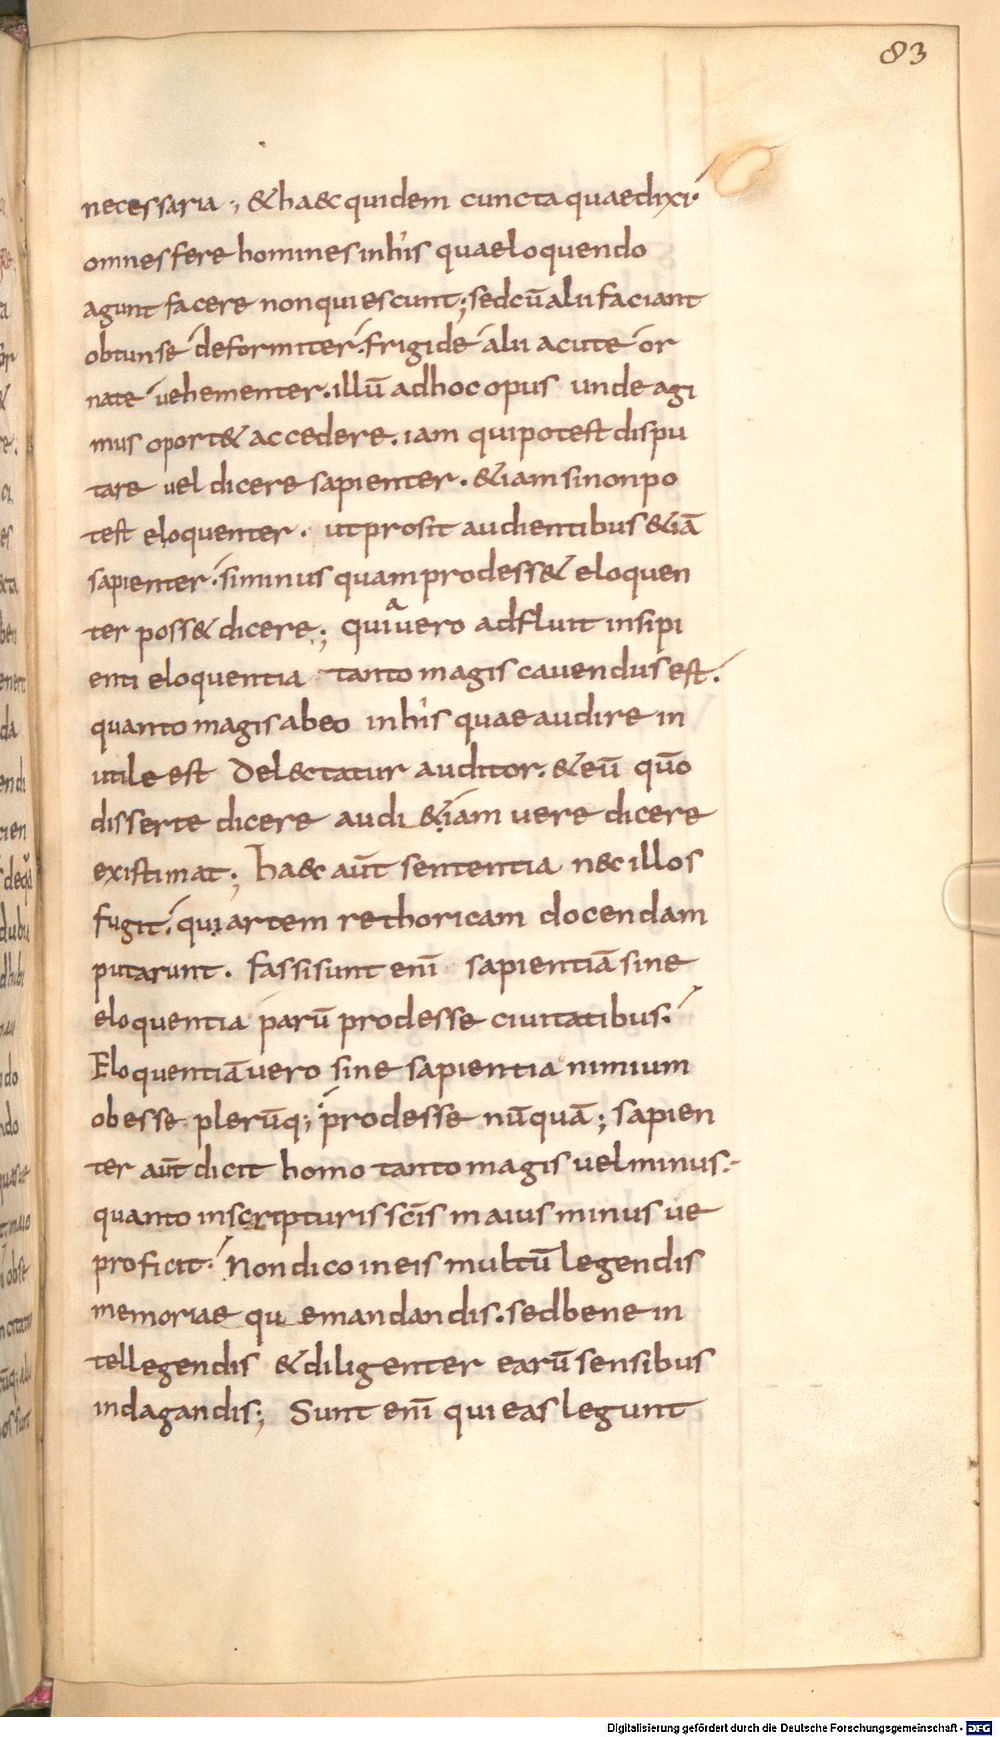 83
necessaria ; & ha&c quidem cuncta quae dixi.
omnes fere homines in his quae loquendo
agunt facere non quiescunt; sed cū alii faciant
obtunse deformiter. frigide alii acute or
nate vehementer. illū ad hoc opus unde agi
mus oport& accedere. iam qui potest dispu
tare vel dicere sapienter. &iam si non po
test eloquenter. ut prosit audientibus &iā
sapienter. si minus quam prodess& eloquen
ter poss& dicere; quiavero adfluit insipi
enti eloquentia tanto magis cavendus est.
quanto magis ab eo in his quae audire in
utile est del&ctatur auditor. & eū quō
disserte dicere audi &iam vere dicere
existimat; ha&c aūt sententia n&c illos
fugit. qui artem rethoricam docendam
putarunt. fassi sunt enī sapientiā sine
eloquentia parū prodesse civitatibus.
Eloquentiā vero sine sapientia nimium
obesse plerūq; prodesse nūquā; sapien
ter aūt dicit homo tanto magis vel minus.
quanto in scripturis scīs maius minus ve
proficit. Non dico in eis multū legendis
memoriae qu emandandis. sed bene in
tellegendis & diligenter earū sensibus
indagandis; Sunt enī qui eas legunt
Digitalisierung gefördert durch die Deutsche Forschungsgemeinschaft - DFG